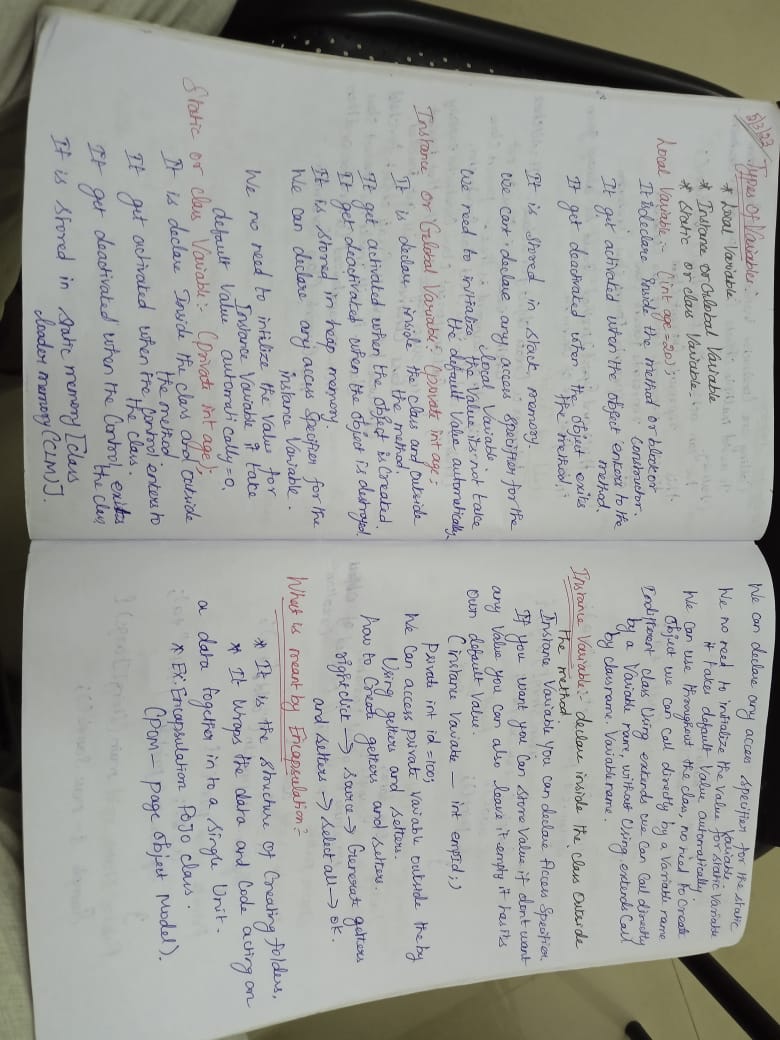 5/3/23
Types Of Variable:
* Local Variable
* Instance or Global Variable
* Static or class Variable.
Local Variable:- (int age=20);
It is declare inside the method or block or
constructor.
It get activated when the object enters to the
method.
It get deactivated when the object exits
the method.
It is stored in stack memory.
We can't declare any access specifier for the
local Variable.
We need to initialize the Value its not take
the default Value automatically.
Instance or Gelobal Variable:- (private int age;
It is declare inside the class and outside
the method.
It get activated when the object is created.
It get deactivated when the object is destroyed.
It is stored in heap memory.
We can declare any access specifier for the
instance Variable.
We no need to intilize the Value for
Instance Variable it take
default Value automatically = 0.
Static or class Variable:- (Private int age);
It is declare Inside the class and outside
the method.
It get activated when the control enters to
the class.
It get deactivated when the Control exits
the class
It is stored in static memory [class
loader memory (CLM)].
We can declare any access specifier for the static
Variable
We no need to initialize the Value for static Variable
it takes default Value automatically.
We can use throughout the class, no need to create
object we can call directly by a Variable name
Indifferent class Using extends we can Call directly
by a Variable name, without Using extends Call
by classname. Variable name.
Instance Variable:- declare inside the class Outside
the method.
Instance Variable you can declare Access Specifier.
If you want you can store Value if dont want
any Value you can also leave it empty it has its
own default Value.
(instance Variable — int empId;)
Private int id = 100;
We can access private Variable outside the by
Using getters and setters.
how to Create getters and setters.
right click → source → Generate getters
and setters → select all → ok.
What is meant by Encapsulation:-
* It is the structure of Creating folders,
* It wraps the data and Code acting on
a data together in to a single Unit.
* Ex: Encapsulation POJO class.
(POM — page object Model).